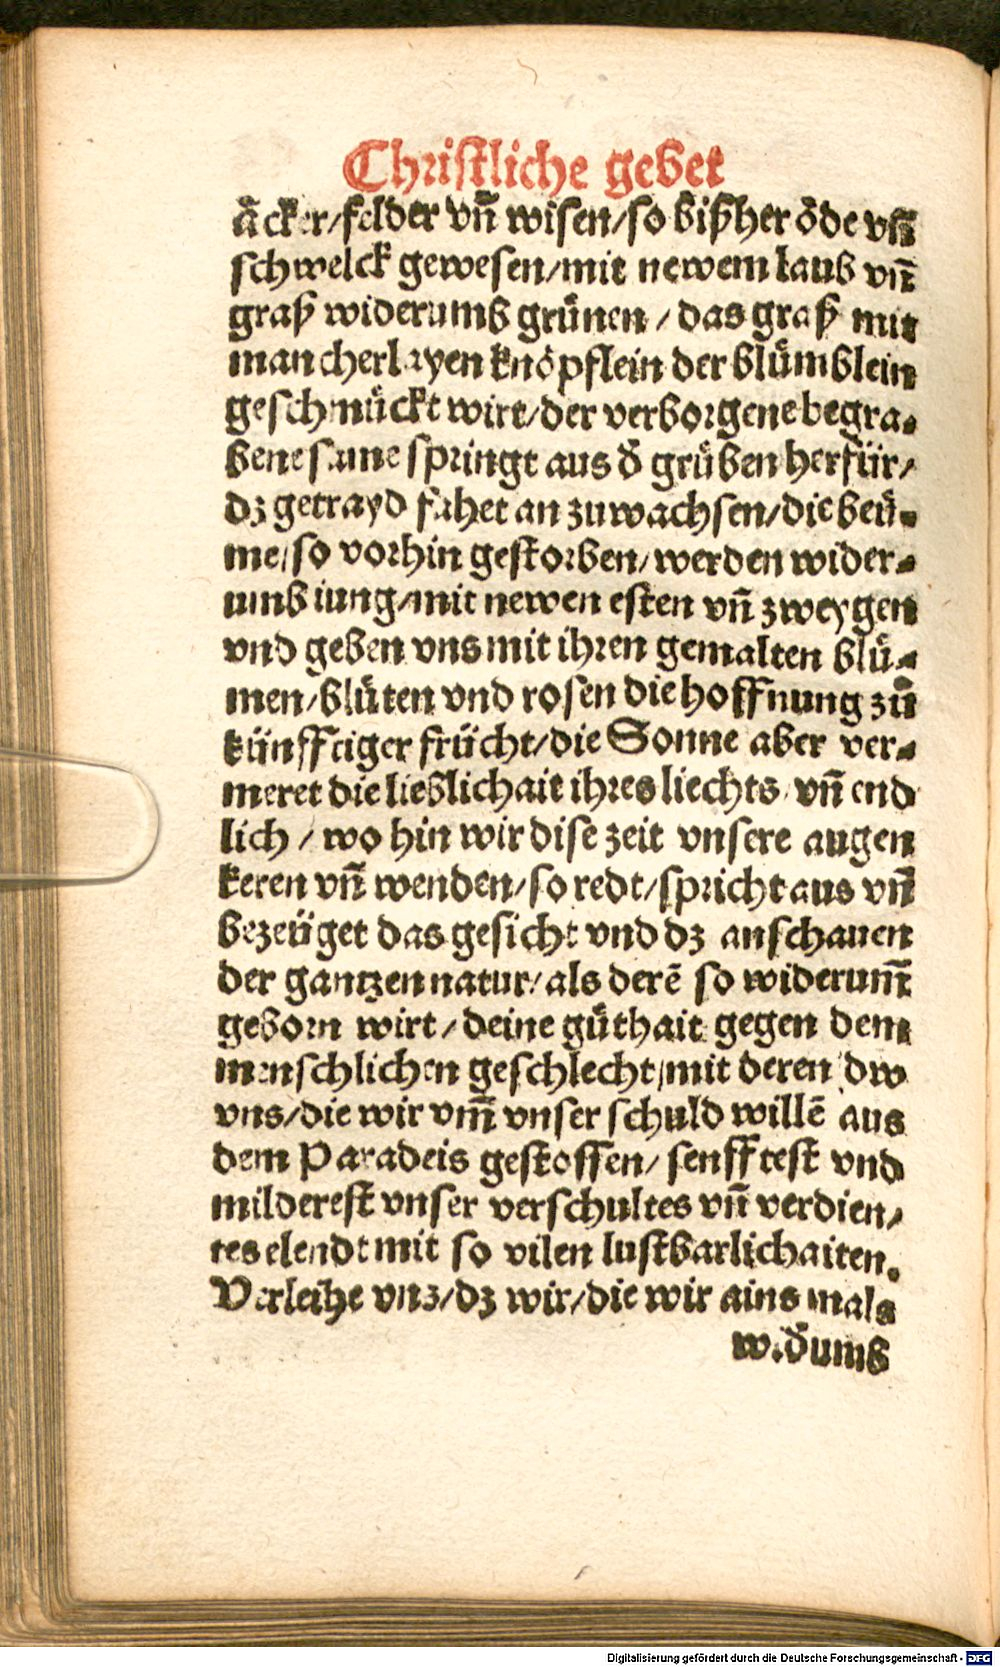 Christliche gebet
äcker/felder vñ wisen/so bißher öde vñ
schwelck gewesen/mit newem laub vñ
graß widerumb grünen / das graß mit
mancherlayen knöpflein der blümblein
geschmückt wirt/der verborgene begra-
bene same springt aus d̄ grüben herfür/
dz getrayd fahet an zuwachsen/die beü-
me/so vorhin gestorben/werden wider-
umb iung/mit newen esten vñ zweygen
vnd geben vns mit ihren gemalten blü-
men/blüten vnd rosen die hoffnung zů
künfftiger frücht/die Sonne aber ver-
meret die lieblichait ihres liechts/vñ end
lich / wo hin wir dise zeit vnsere augen
keren vñ wenden/so redt/spricht aus vñ
bezeüget das gesicht vnd dz anschauen
der gantzen natur/als derē so widerum̄
geborn wirt/deine gůthait gegen dem
menschlichen geschlecht/mit deren dw
vns/die wir vm̄ vnser schuld willē aus
dem Paradeis gestossen/senfftest vnd
milderest vnser verschultes vñ verdien/
tes elendt mit so vilen lustbarlichaiten.
Verleihe vns/dz wir/die wir ains mals
wid̄umb
Digitalisierung gefördert durch die Deutsche Forschungsgemeinschaft - DFG